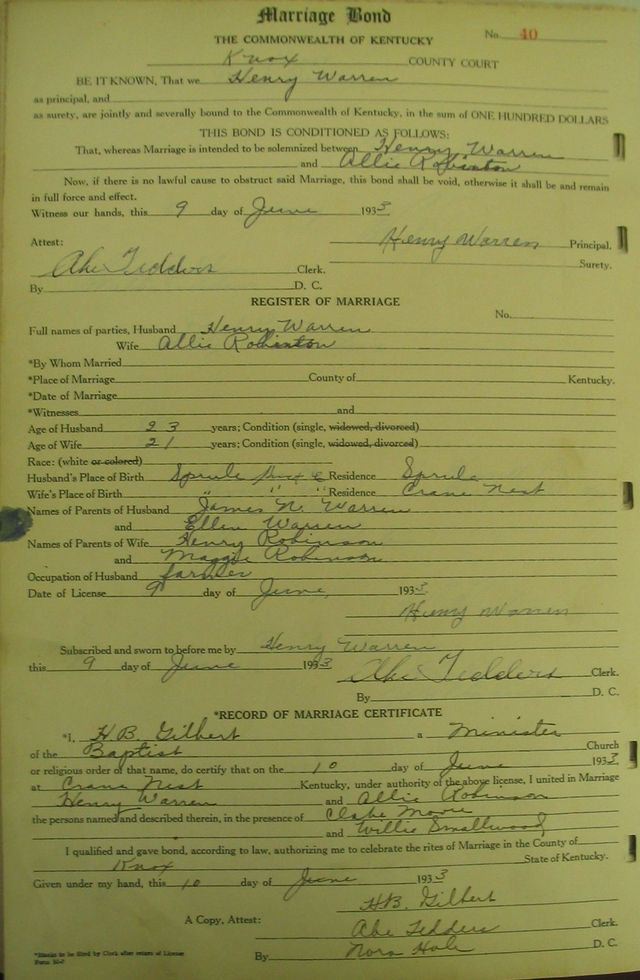 Marriage Bond
THE COMMONWEALTH OF KENTUCKY
No. 40
Knox COUNTY COURT
BE IT KNOWN, That we Henry Warren
as principal, and
as surety, are jointly and severally bound to the Commonwealth of Kentucky, in the sum of ONE HUNDRED DOLLARS
THIS BOND IS CONDITIONED AS FOLLOWS:
That, whereas Marriage is intended to be solemnized between Henry Warren
and Allie Robinson
Now, if there is no lawful cause to obstruct said Marriage, this bond shall be void, otherwise it shall be and remain
in full force and effect.
Witness our hands, this 9 day of June 1933
Henry Warren Principal.
Attest:
Surety.
Abe Tedders Clerk.
By D. C.
REGISTER OF MARRIAGE
No.
Full names of parties, Husband Henry Warren
Wife Allie Robinson
*By Whom Married
*Place of Marriage County of Kentucky.
*Date of Marriage
*Witnesses and
Age of Husband 23 years; Condition (single, widowed, divorced)
Age of Wife 21 years; Condition (single, widowed, divorced)
Race: (white or colored)
Husband's Place of Birth Sprule Residence Sprule
Wife's Place of Birth " " " Residence Crane Nest
Names of Parents of Husband James N. Warren
and Ellen Warren
Names of Parents of Wife Henry Robinson
and Maggie Robinson
Occupation of Husband farmer
Date of License 9 day of June, 1933
Henry Warren
Subscribed and sworn to before me by Henry Warren
this 9 day of June 1933
Abe Tedders Clerk.
By D. C.
*RECORD OF MARRIAGE CERTIFICATE
*I, H.B. Gilbert a Minister
of the Baptist Church
or religious order of that name, do certify that on the 10 day of June 1933
at Crane Nest Kentucky, under authority of the above license, I united in Marriage
Henry Warren and Allie Robinson
the persons named and described therein, in the presence of Clabe Moore
and Willie Smallwood
I qualified and gave bond, according to law, authorizing me to celebrate the rites of Marriage in the County of
Knox State of Kentucky.
Given under my hand, this 10 day of June 1933
H.B. Gilbert
A Copy, Attest: Abe Tedders Clerk.
By Nora Hale D. C.
*Blanks to be filled by Clerk after return of License